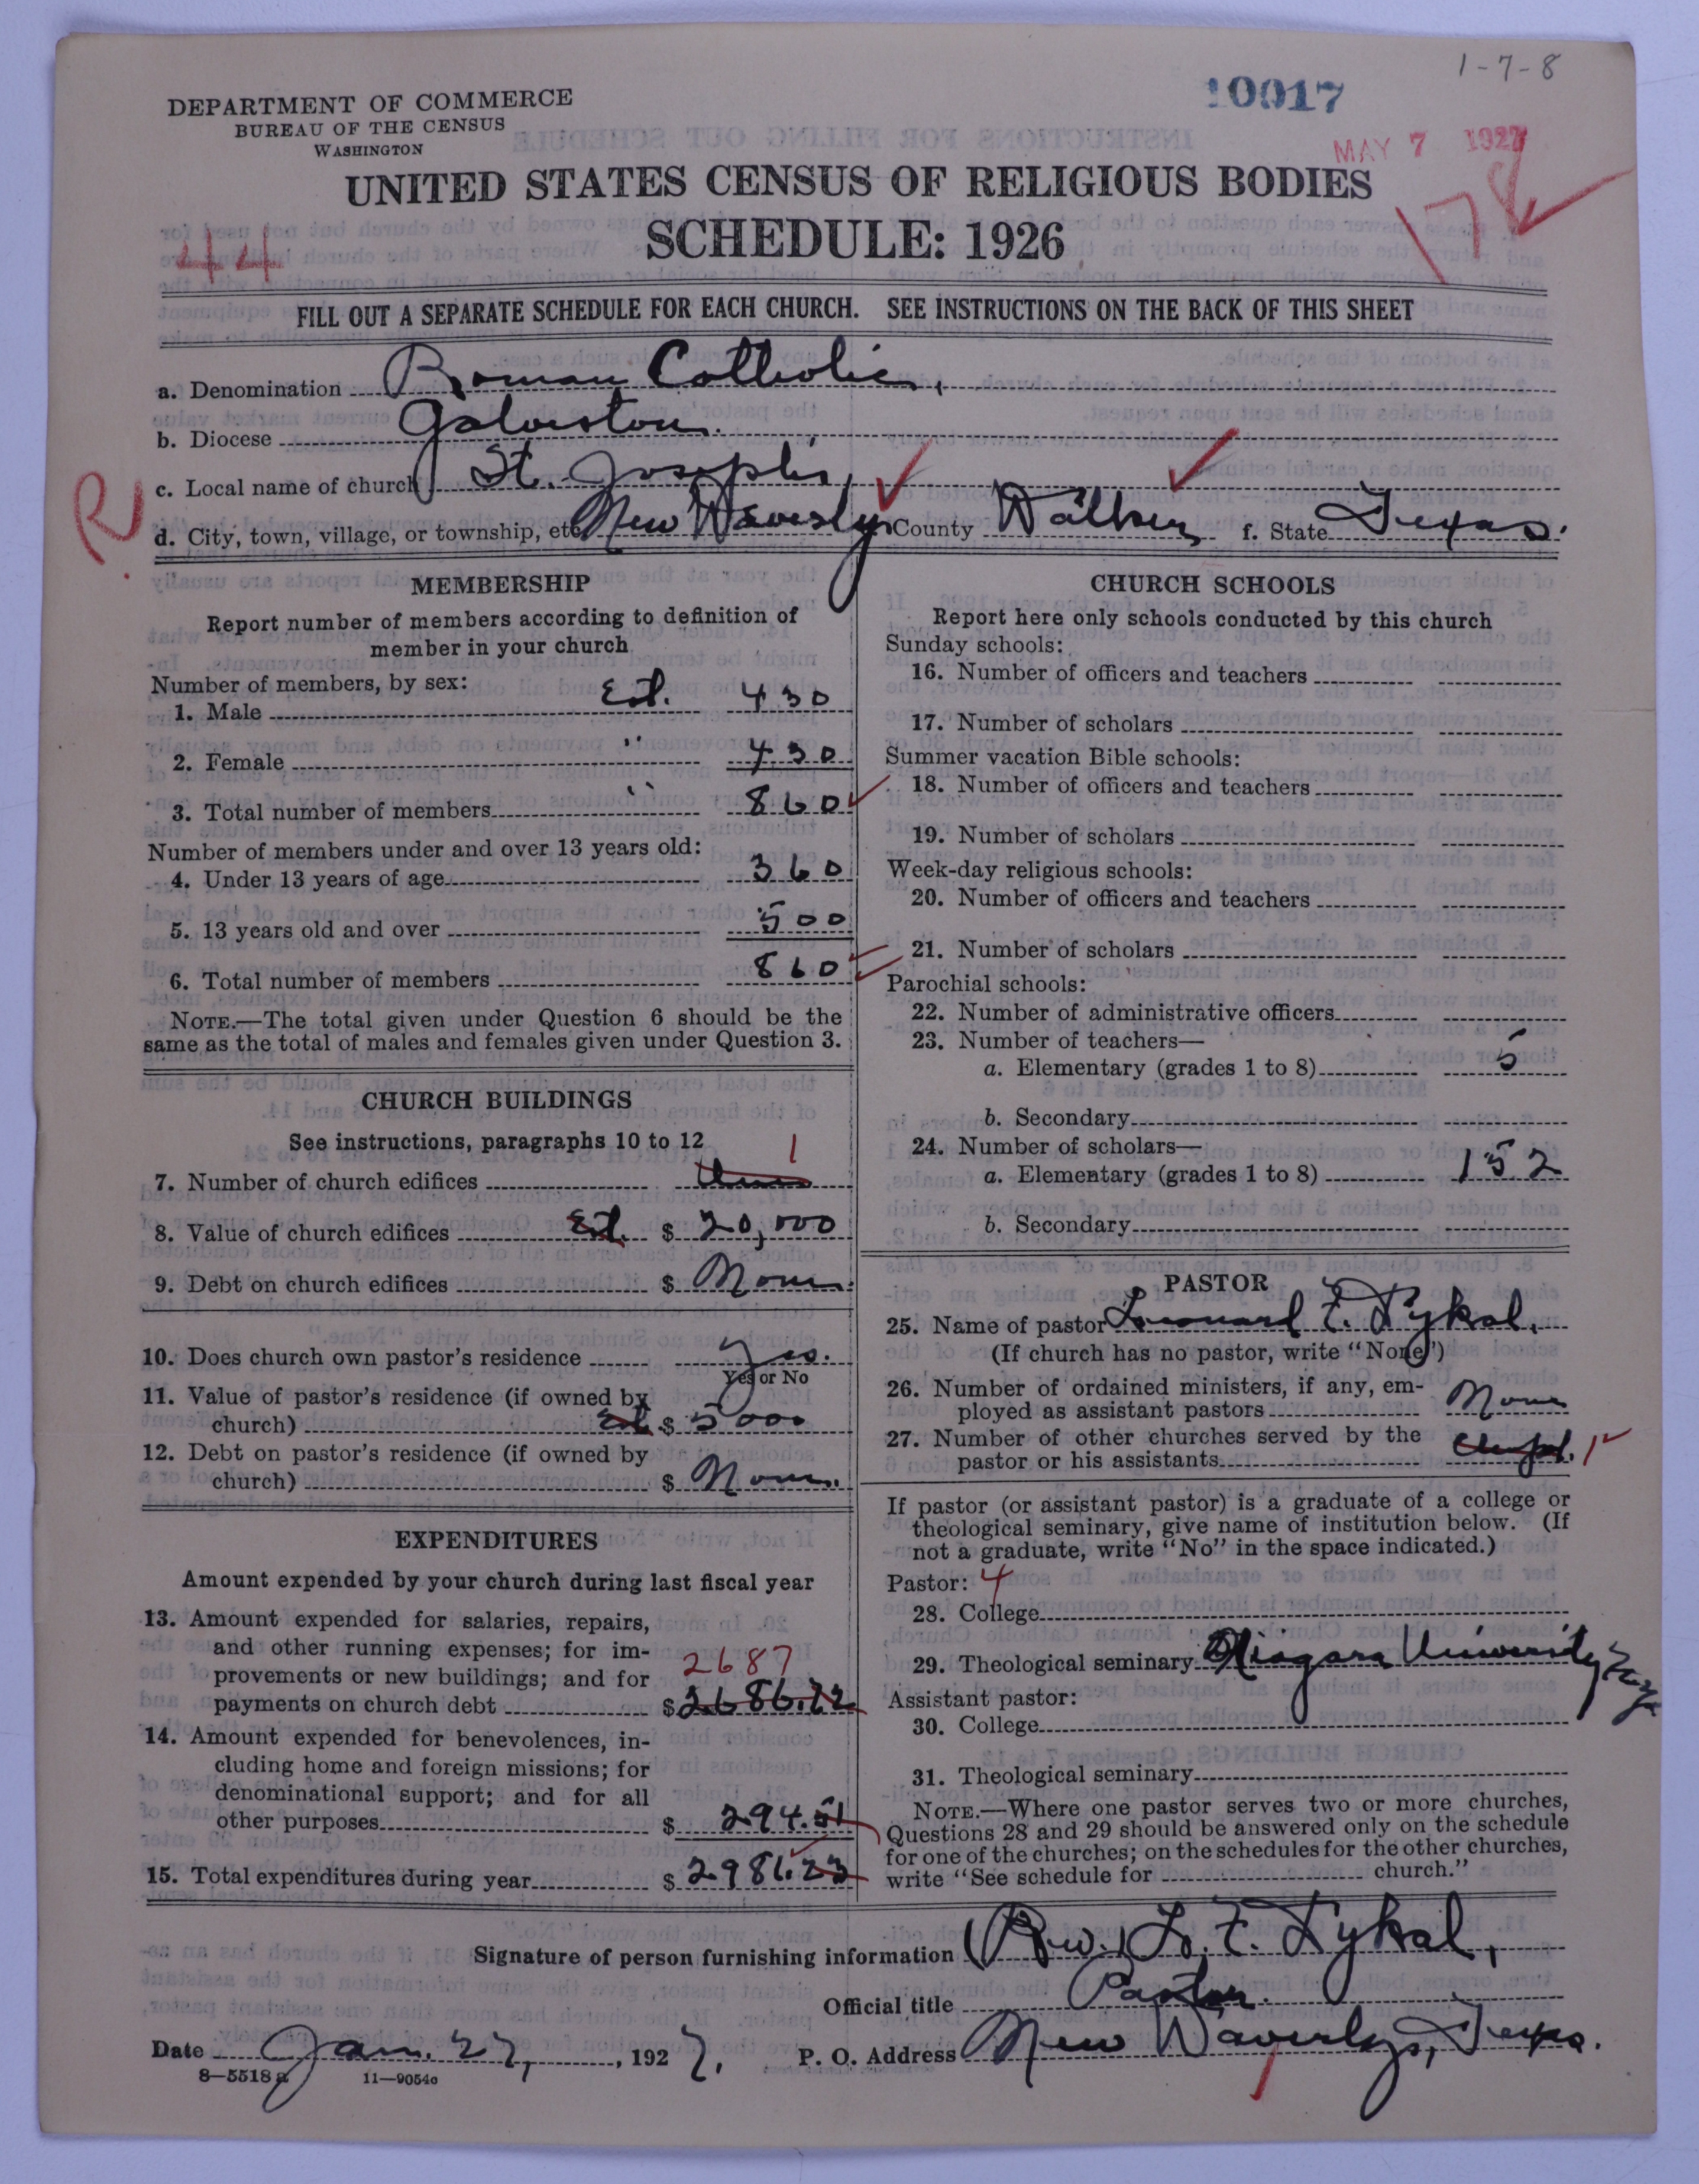 1-7-8
10017
DEPARTMENT OF COMMERCE
BUREAU OF THE CENSUS
WASHINGTON
MAY 7 1927
UNITED STATES CENSUS OF RELIGIOUS BODIES
SCHEDULE: 1926
44
FILL OUT A SEPARATE SCHEDULE FOR EACH CHURCH. SEE INSTRUCTIONS ON THE BACK OF THIS SHEET
a. Denomination Roman Catholic,
b. Diocese Galveston.
c. Local name of church St. Joseph's,
R
d. City, town, village, or township, etc New Waverly, County Walker f. State Texas.
MEMBERSHIP
Report number of members according to definition of
member in your church
Number of members, by sex:
1. Male Est. 430
2. Female " 430
3. Total number of members " 860
Number of members under and over 13 years old:
4. Under 13 years of age 360
5. 13 years old and over 500
6. Total number of members 860
NOTE.—The total given under Question 6 should be the
same as the total of males and females given under Question 3.
CHURCH BUILDINGS
See instructions, paragraphs 10 to 12
7. Number of church edifices 1
8. Value of church edifices Est. $ 20,000
9. Debt on church edifices $ None.
10. Does church own pastor's residence Yes.
Yes or No
11. Value of pastor's residence (if owned by
church) Est. $ 5000
12. Debt on pastor's residence (if owned by
church) $ None.
EXPENDITURES
Amount expended by your church during last fiscal year
13. Amount expended for salaries, repairs,
and other running expenses; for im-
provements or new buildings; and for 2687
payments on church debt $ 2686.72
14. Amount expended for benevolences, in-
cluding home and foreign missions; for
denominational support; and for all
other purposes $ 294.51
15. Total expenditures during year $ 2981.23
CHURCH SCHOOLS
Report here only schools conducted by this church
Sunday schools:
16. Number of officers and teachers
17. Number of scholars
Summer vacation Bible schools:
18. Number of officers and teachers
19. Number of scholars
Week-day religious schools:
20. Number of officers and teachers
21. Number of scholars
Parochial schools:
22. Number of administrative officers
23. Number of teachers—
a. Elementary (grades 1 to 8) 5
b. Secondary
24. Number of scholars—
a. Elementary (grades 1 to 8) 152
b. Secondary
PASTOR
25. Name of pastor Leonard F. Tykal,
(If church has no pastor, write "None")
26. Number of ordained ministers, if any, em-
ployed as assistant pastors None
27. Number of other churches served by the
pastor or his assistants 1
If pastor (or assistant pastor) is a graduate of a college or
theological seminary, give name of institution below. (If
not a graduate, write "No" in the space indicated.)
Pastor: 4
28. College
29. Theological seminary Niagara University N.Y.
Assistant pastor:
30. College
31. Theological seminary
NOTE.—Where one pastor serves two or more churches,
Questions 28 and 29 should be answered only on the schedule
for one of the churches; on the schedules for the other churches,
write "See schedule for church."
Signature of person furnishing information (Rev.) L. F. Tykal,
Official title Pastor.
Date Jan. 27, , 1927. P. O. Address New Waverly, Texas.
8—5518 a 11—9054a